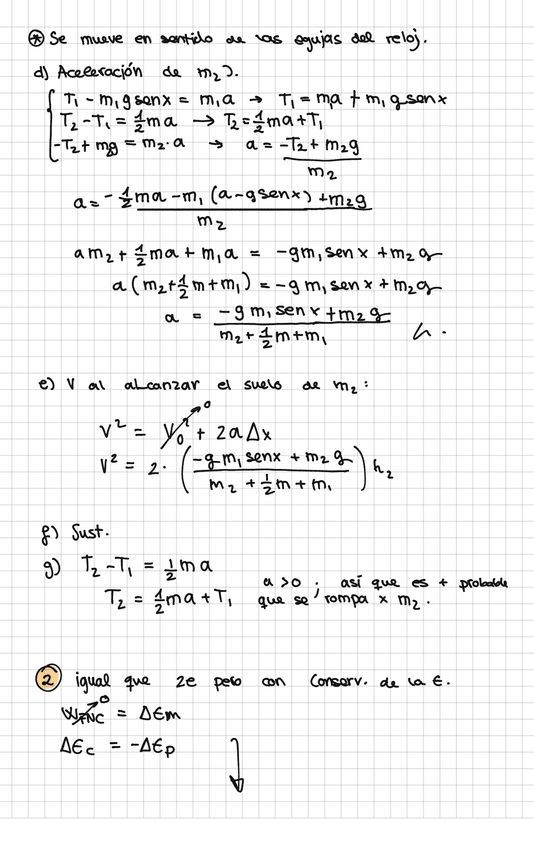 ⊛ Se mueve en sentido de las agujas del reloj.
d) Aceleración de m₂).
T₁ - m₁gsenx = m₁a → T₁ = ma + m₁gsenx
T₂-T₁ = ½ma → T₂ = ½ma+T₁
-T₂+mg = m₂·a → a = (-T₂+m₂g)/m₂
a = (-½ma-m₁(a-gsenx)+m₂g)/m₂
am₂+½ma+m₁a = -gm₁senx+m₂g
a(m₂+½m+m₁) = -gm₁senx+m₂g
a = (-gm₁senx+m₂g)/(m₂+½m+m₁)
e) V al alcanzar el suelo de m₂:
V² = V₀² 0 + 2aΔx
V² = 2·((-gm₁senx+m₂g)/(m₂+½m+m₁))h₂
f) Sust.
g) T₂-T₁ = ½ma
T₂ = ½ma+T₁ a>0; así que es + probable
que se rompa x m₂.
2 igual que 2e pero con Conserv. de la E.
WFNC 0 = ΔEm
ΔEc = -ΔEp